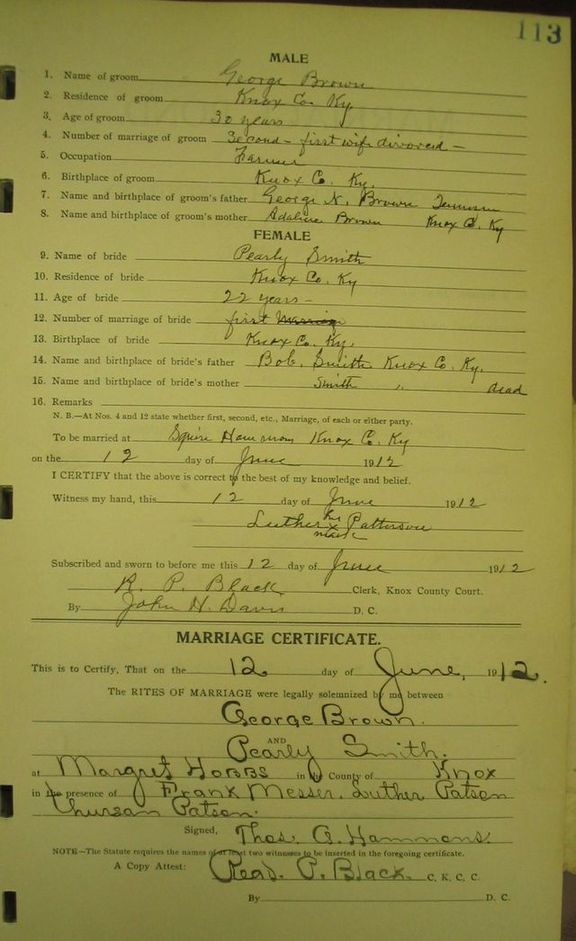 113
MALE
1. Name of groom George Brown
2. Residence of groom Knox Co. Ky.
3. Age of groom 30 years
4. Number of marriage of groom Second - first wife divorced -
5. Occupation Farmer
6. Birthplace of groom Knox Co. Ky.
7. Name and birthplace of groom's father George N. Brown
8. Name and birthplace of groom's mother Adaline Brown Knox Co. Ky
FEMALE
9. Name of bride Pearly Smith
10. Residence of bride Knox Co. Ky
11. Age of bride 22 years -
12. Number of marriage of bride first Marriage
13. Birthplace of bride Knox Co. Ky.
14. Name and birthplace of bride's father Bob. Smith Knox Co. Ky.
15. Name and birthplace of bride's mother Smith " dead
16. Remarks
N. B.—At Nos. 4 and 12 state whether first, second, etc., Marriage, of each or either party.
To be married at Squire Knox Co. Ky
on the 12 day of June 1912
I CERTIFY that the above is correct to the best of my knowledge and belief.
Witness my hand, this 12 day of June 1912
Luther his x mark Patterson
Subscribed and sworn to before me this 12 day of June 1912
R. P. Black Clerk, Knox County Court.
By John H. Davis D. C.
MARRIAGE CERTIFICATE.
This is to Certify, That on the 12 day of June, 1912.
The RITES OF MARRIAGE were legally solemnized by me between
George Brown.
AND
Pearly Smith.
at Margret Hobbs in the County of Knox
in the presence of Frank Messer. Luther Patson
Patson.
Signed, Thos. G. Hammons.
NOTE—The Statute requires the names of at least two witnesses to be inserted in the foregoing certificate.
A Copy Attest: Read. P. Black. C. K. C. C.
By D. C.